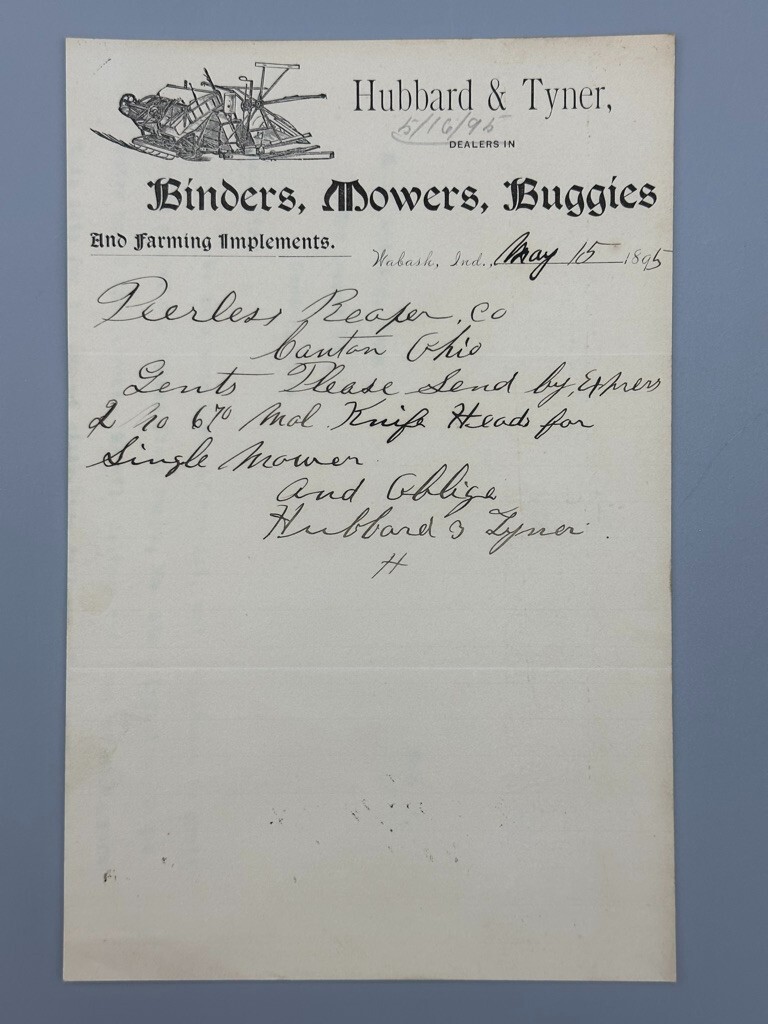 Hubbard & Tyner,
5/16/95
DEALERS IN
Binders, Mowers, Buggies
And Farming Implements.
Wabash, Ind., May 15 1895
Peerless Reaper, Co
Canton Ohio
Gents Please Send by, Express
2 no 670 Mal Knife Heads for
Single Mower
and Oblige
Hubbard & Tyner
H